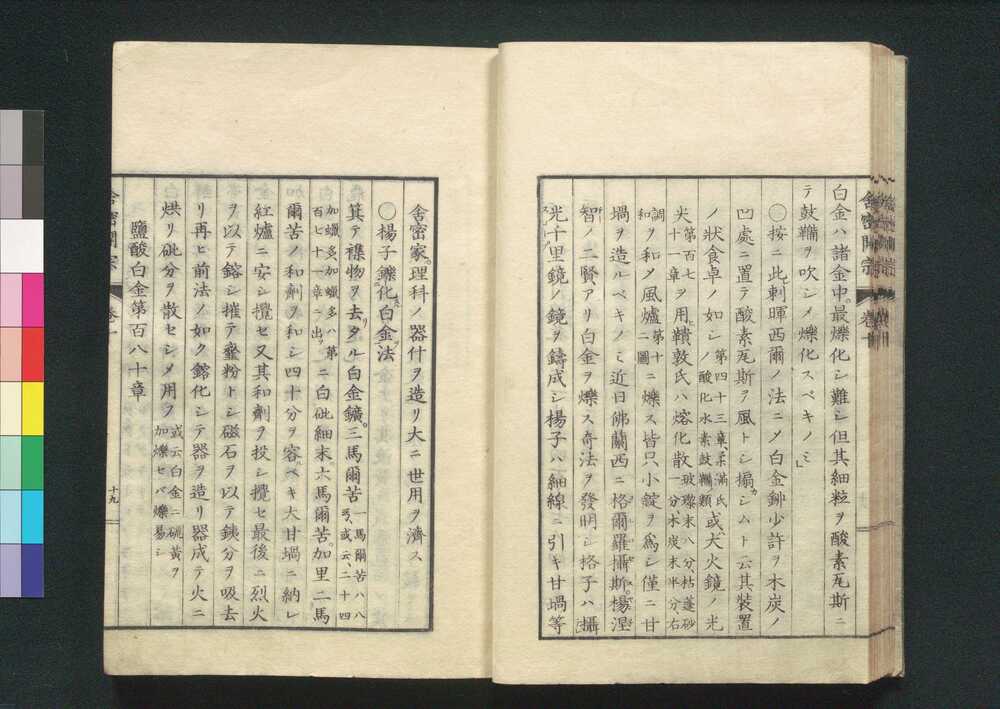 白金ハ諸金中最爍化シ難シ但其細粒ヲ酸素瓦斯ニ
テ鼓鞴ヲ吹シメ爍化スベキノミ
◯按ニ此刺暉西爾ノ法ニ〆白金鉚少許ヲ木炭ノ
凹處ニ置テ酸素瓦斯ヲ風トシ搧シムト云其裝置
ノ狀食卓ノ如シ第四十三章柔滿氏ノ酸化水素鼓鞴類或ハ大火鏡ノ光
尖第百七十一章ヲ用ヒ鞼敦氏ハ熔化散玻瓈末八分枯蓬砂一分木炭末半分右
調和ヲ和〆風爐第十二圖ニ爍ス皆只小錠ヲ爲シ僅ニ甘
堝ヲ造ルベキノミ近日佛蘭西ニ格爾羅攝斯楊涅
智ノ二賢アリ白金ヲ爍ス奇法ヲ發明シ格子ハ攝
光千里鏡ノ鏡ヲ鑄成シ楊子ハ細線ニ引キ甘堝等
舍密開宗 卷十
舍密家理科ノ器什ヲ造リ大ニ世用ヲ濟ス
◯楊子鑠化白金法
箕テ襍物ヲ去タル白金鑛三馬爾苦一馬爾苦ハ八弓或云二十四
加蠟多加蠟多ハ第百七十一章ニ出ニ白砒細末六馬爾苦加里二馬
爾苦ノ和劑ヲ和シ四十分ヲ容ベキ大甘堝ニ納レ
紅爐ニ安シ攪セ又其和劑ヲ投シ攪セ最後ニ烈火
ヲ以テ鎔シ摧テ齏粉トシ磁石ヲ以テ鐵分ヲ吸去
リ再ヒ前法ノ如ク鎔化シテ器ヲ造リ器成テ火ニ
烘リ砒分ヲ散セシメ用フ或云白金ニ硫黃ヲ加爍セバ爍易シ
鹽酸白金第百八十章
舍密開宗 卷十 十九